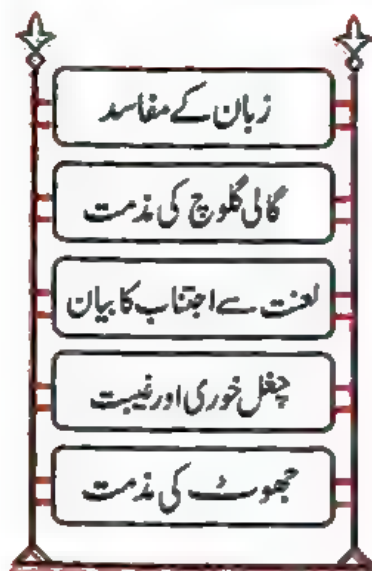 زبان کے مفاسد
گالی گلوچ کی مذمت
لعنت سے اجتناب کا بیان
چغل خوری اور غیبت
جھوٹ کی مذمت